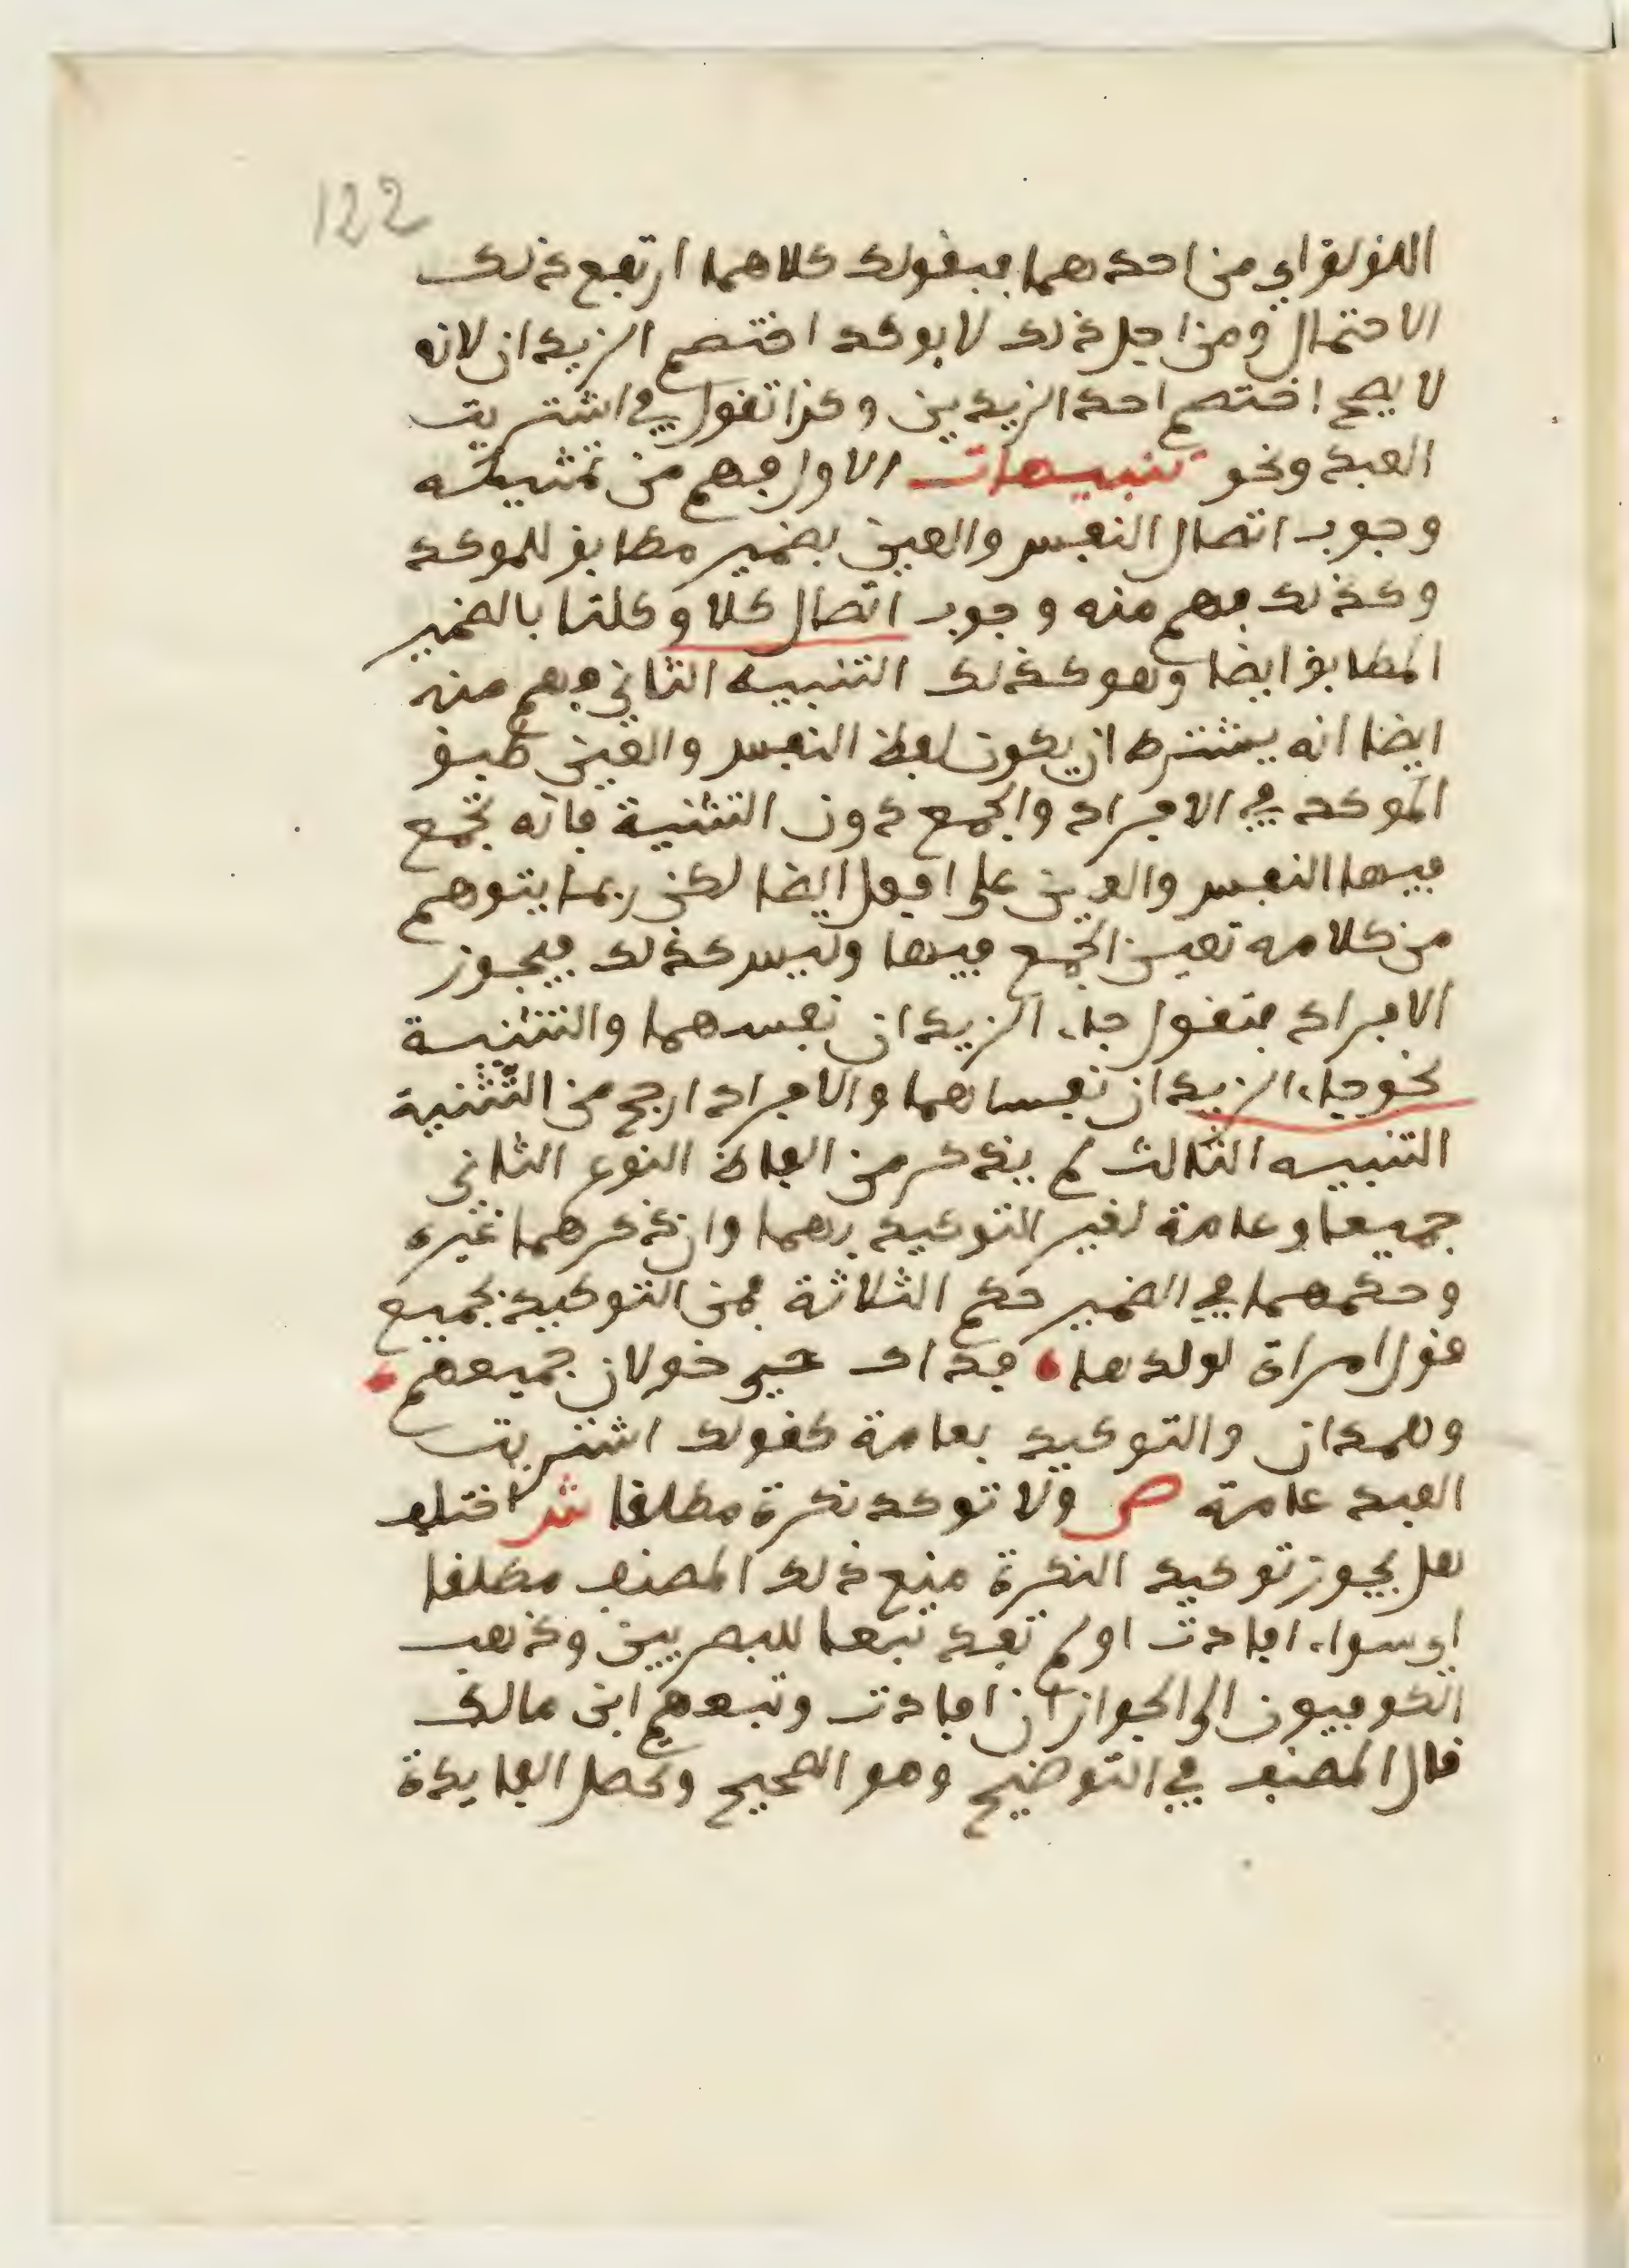 122
من احدهما فبقولك كلاهما ارتفع ذلك
الاحتمال ومن اجل ذلك لا يوكد اختصم الزيدان لانه
لا يصح اختصم احد الزيدين وكذا تقول في اشتريت
العبد ونحو تنبيهات الاول فهم من تمثيله
وجوب اتصال النفس والعين بضمير مطابق للموكد
وكذلك فهم منه وجوب اتصال كلا وكلتا بالضمير
المطابق ايضا وهو كذلك التنبيه الثاني وهم منه
ايضا انه يشترط ان يكون لفظ النفس والعين طبق
الموكد في الافراد والجمع دون التثنية فانه تجمع
فيها النفس والعين على افعل ايضا لكن ربما يتوهم
من كلامه تعين الجمع فيها وليس كذلك فيجوز
الافراد فتقول جاء الزيدان نفسهما والتثنية
نحو جاء الزيدان نفساهما والافراد ارجح من التثنية
التنبيه الثالث لم يذكر من الفاظ النوع الثاني
جميعا وعامة لغير التوكيد بهما وان ذكرهما غيره
وحكمهما في الضمير حكم الثلاثة فمن التوكيد بجميع
قول امراة لولدها فداك حي خولان جميعهم
وهمدان والتوكيد بعامة كقولك اشتريت
العبد عامة ص ولا توكد نكرة مطلقا ش اختلف
هل يجوز توكيد النكرة منع ذلك المصنف مطلقا
اي سواء افادت او لم تفد تبعا للبصريين وذهب
الكوفيون الى الجواز ان افادت وتبعهم ابن مالك
قال المصنف في التوضيح وهو الصحيح وتحصل الفايدة